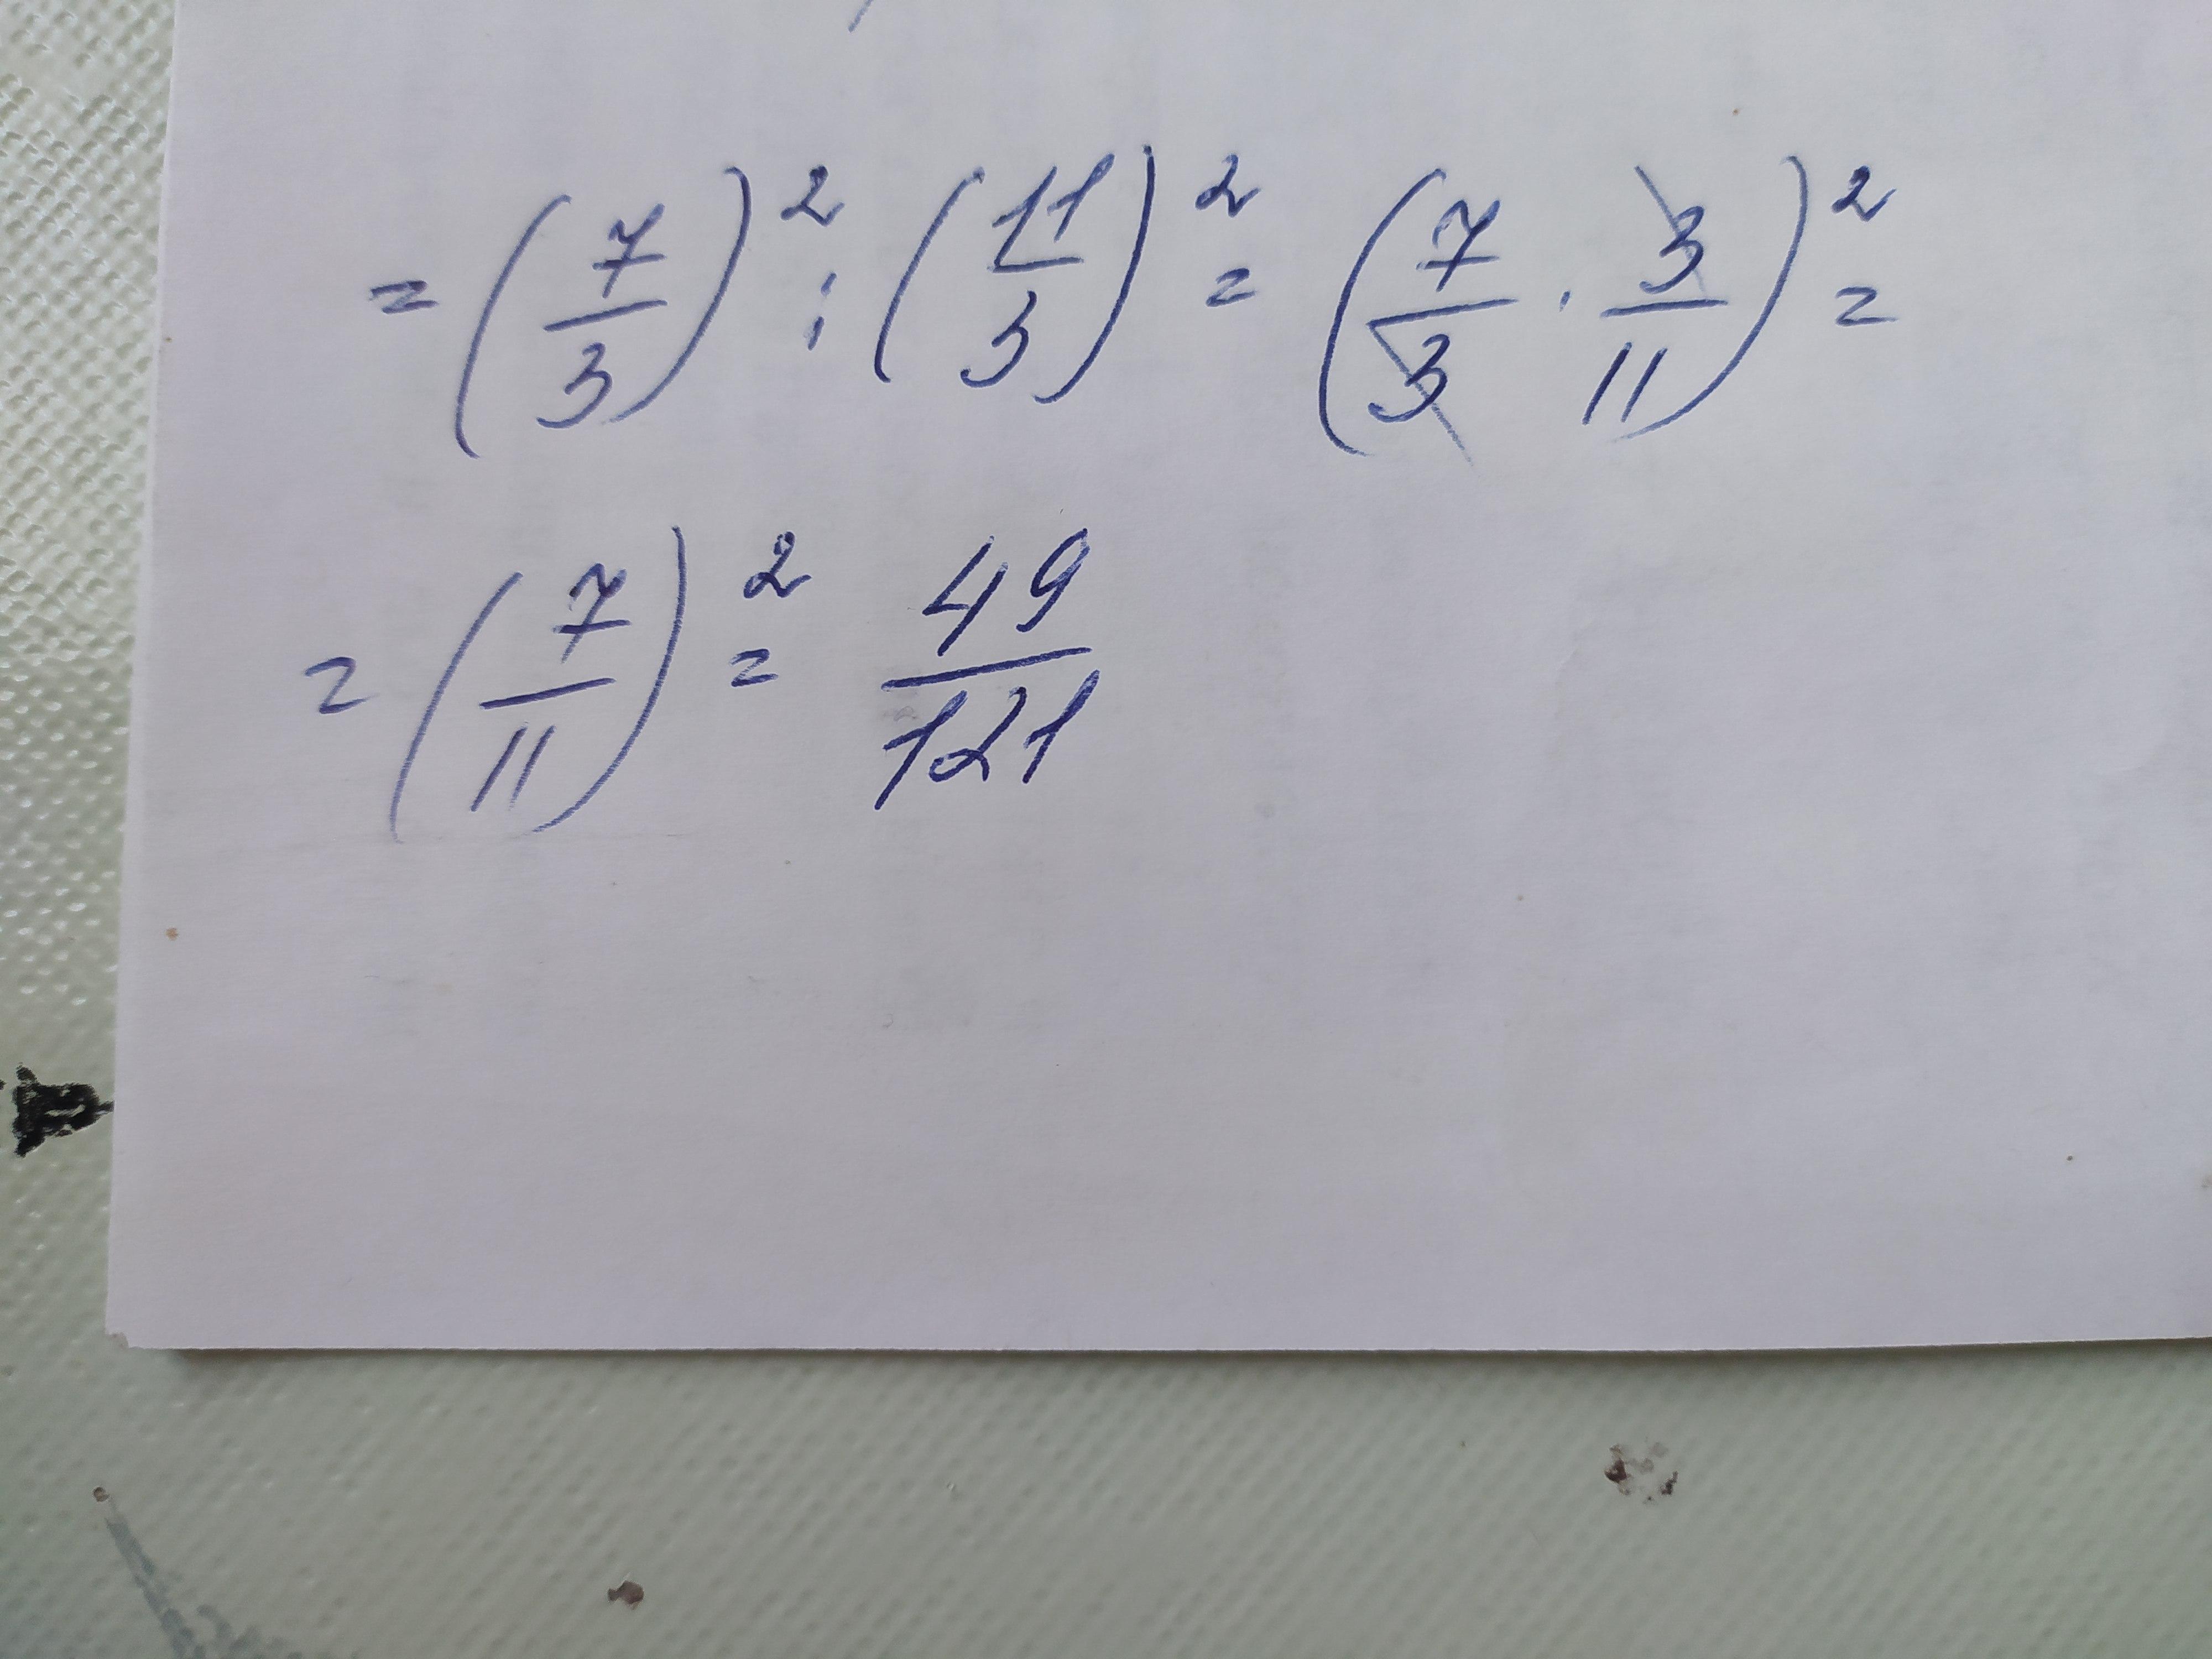 = (7/3)² : (11/3)² = (7/3 · 3/11)² =
= (7/11)² = 49/121